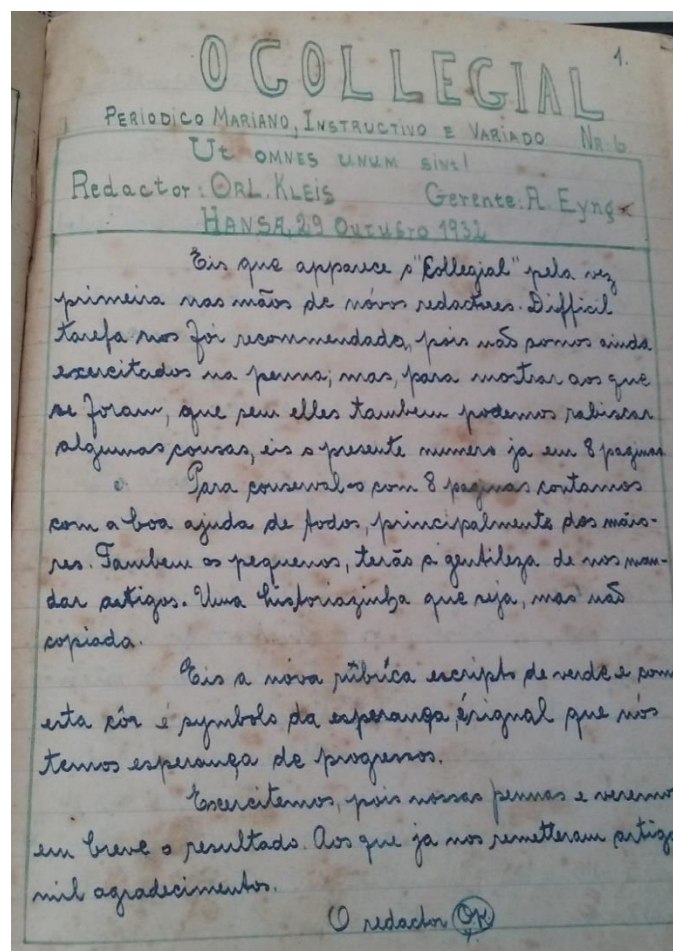 1.
O COLLEGIAL
PERIODICO MARIANO, INSTRUCTIVO E VARIADO NR. 6
UT OMNES UNUM SINT!
Redactor: ORL. KLEIS Gerente: A. Eyng
HANSA, 29 OUTUBRO 1932
Eis que apparece o "Collegial" pela vez
primeira nas mãos de nóvos redactores. Difficil
tarefa nos foi recommendado, pois não somos ainda
exercitados na penna; mas, para mostrar aos que
se foram, que sem elles tambem podemos rabiscar
algumas cousas, eis o presente numero ja em 8 paginas
Para conserval-o com 8 paginas contamos
com a boa ajuda de todos, principalmente dos máio-
res. Tambem os pequenos, terão a gentileza de nos man-
dar artigos. Uma historiazinha que seja, mas não
copiada.
Eis a nóva rúbrica escripto de verde e com
esta côr é symbolo da esperança, é signal que nós
temos esperança de progressos.
Exercitemos, pois nossas pennas e veremo
em breve o resultado. Aos que ja nos remetteram artigo
mil agradecimentos.
O redactor OK